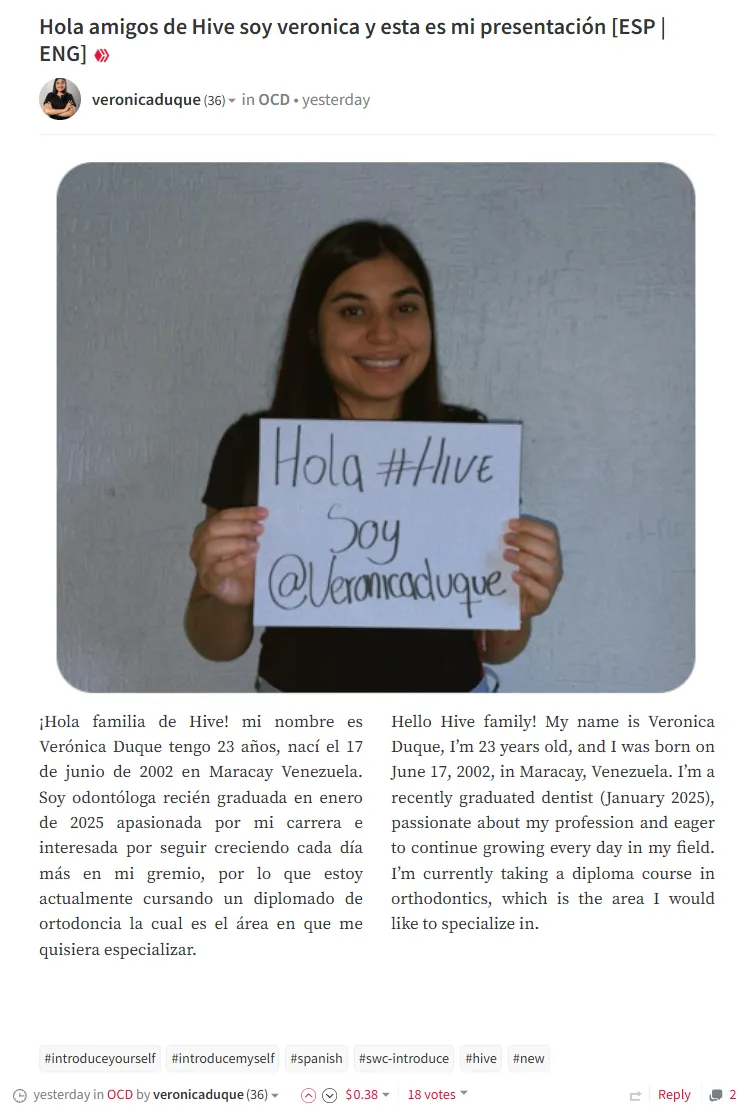 Hola amigos de Hive soy veronica y esta es mi presentación [ESP |
ENG]
veronicaduque (36) in OCD • yesterday
Hola #HIVE
Soy
@Veronicaduque
¡Hola familia de Hive! mi nombre es
Verónica Duque tengo 23 años, nací el 17
de junio de 2002 en Maracay Venezuela.
Soy odontóloga recién graduada en enero
de 2025 apasionada por mi carrera e
interesada por seguir creciendo cada día
más en mi gremio, por lo que estoy
actualmente cursando un diplomado de
ortodoncia la cual es el área en que me
quisiera especializar.
Hello Hive family! My name is Veronica
Duque, I’m 23 years old, and I was born on
June 17, 2002, in Maracay, Venezuela. I’m a
recently graduated dentist (January 2025),
passionate about my profession and eager
to continue growing every day in my field.
I’m currently taking a diploma course in
orthodontics, which is the area I would
like to specialize in.
#introduceyourself #introducemyself #spanish #swc-introduce #hive #new
yesterday in OCD by veronicaduque (36) $0.38 18 votes Reply 2